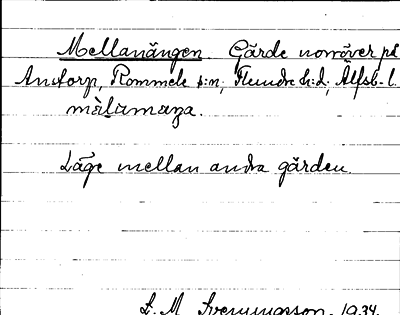 Mellanängen Gärde norröver på
Anstorp, Rommele s:n, Flundre h:d, Älfsb. l.
mälamaza.
Läge mellan andra gärden.
L. M. Svenungsson. 1934.